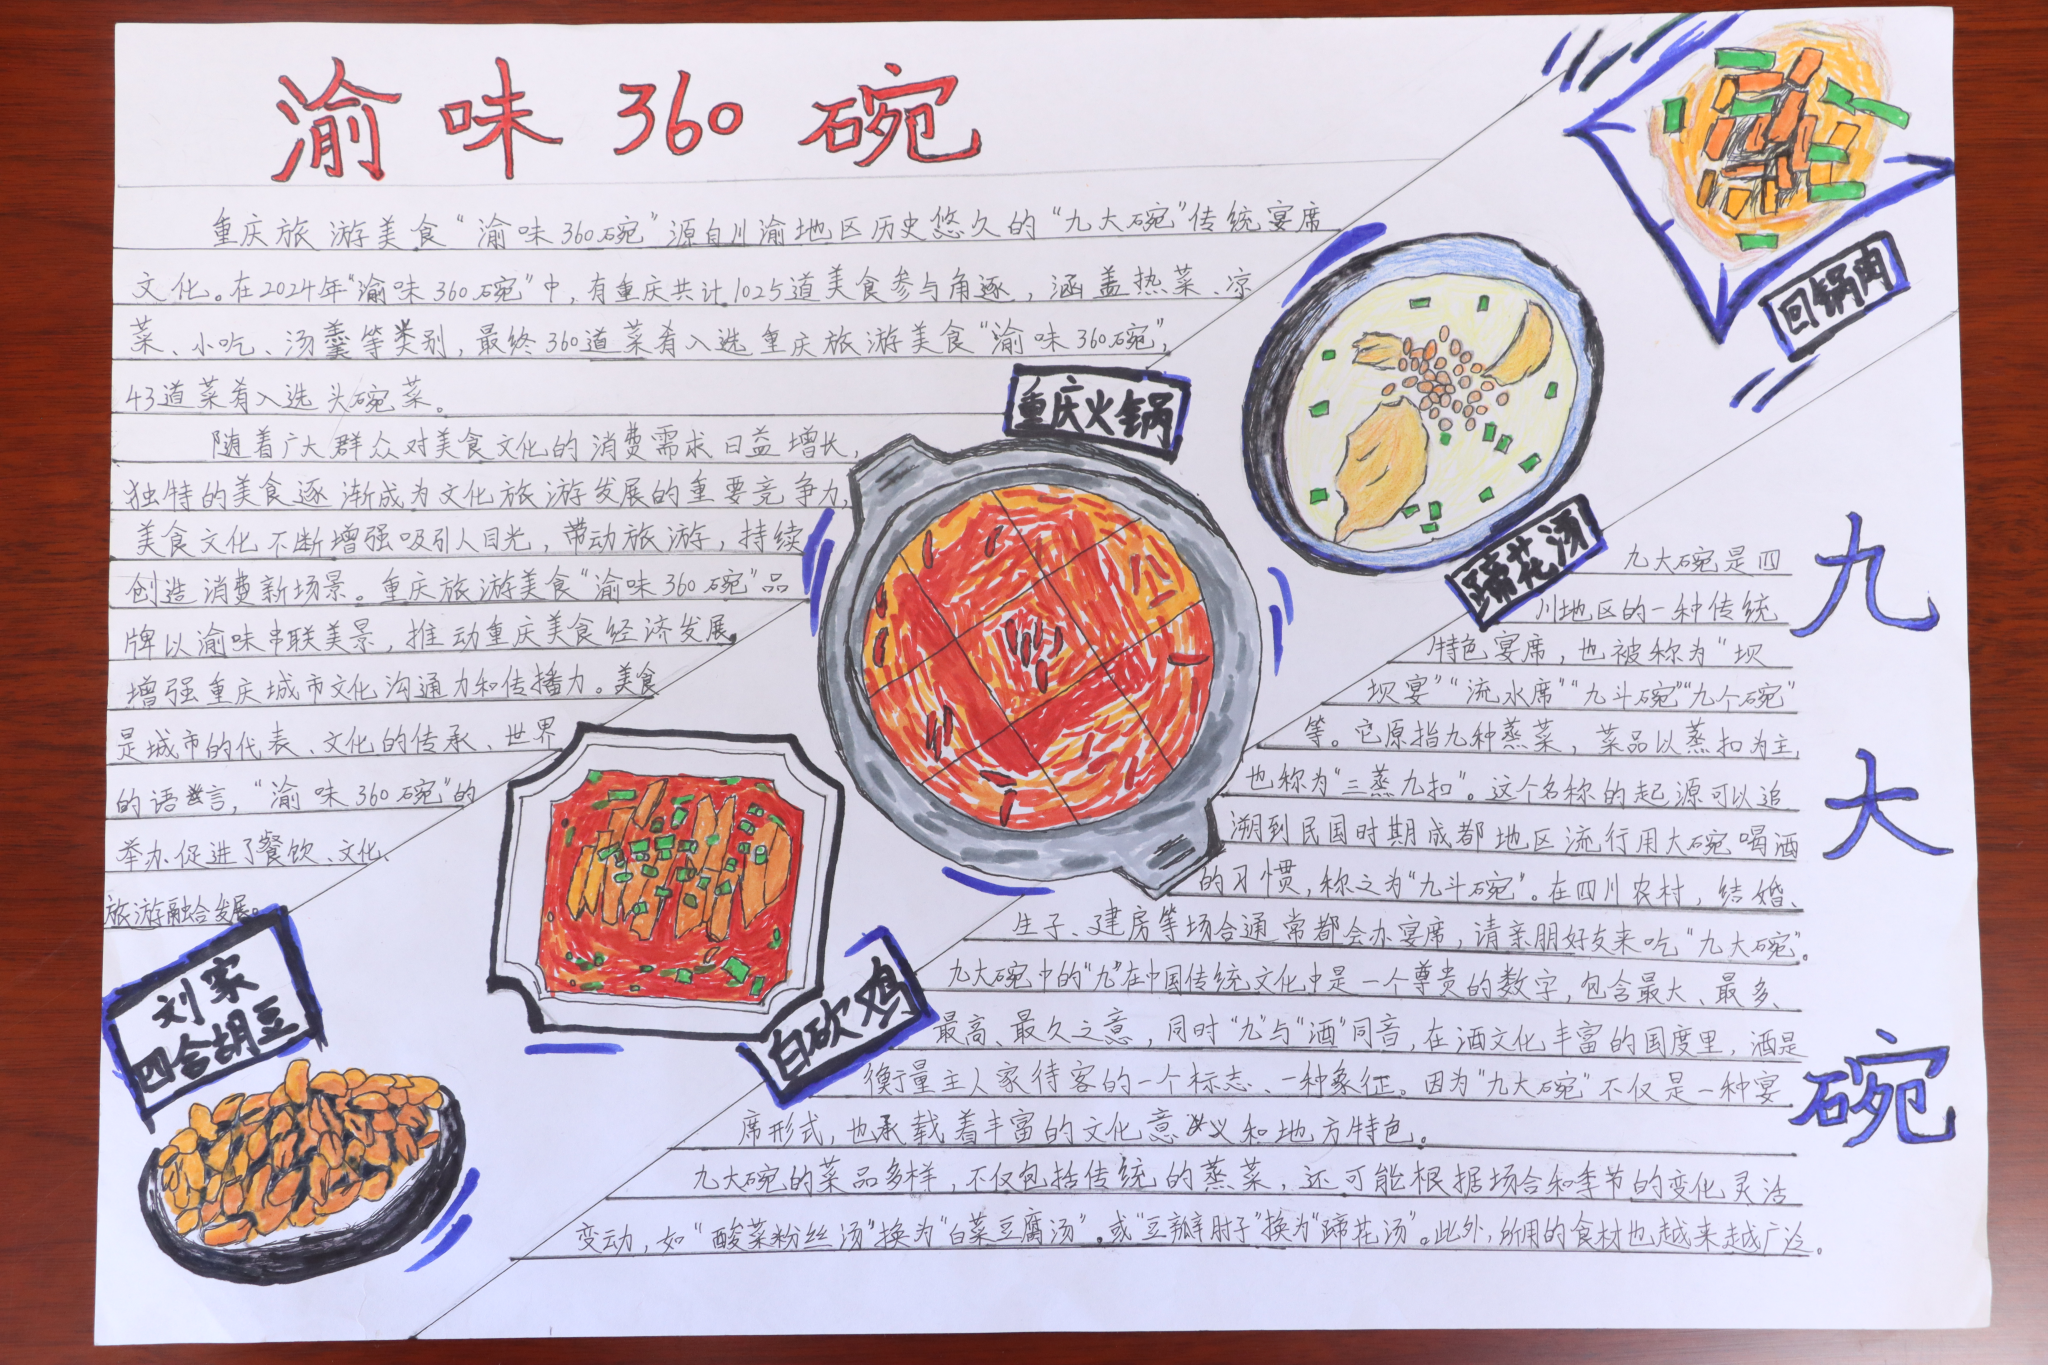 渝味360碗
重庆旅游美食“渝味360碗”源自川渝地区历史悠久的“九大碗”传统宴席
文化。在2024年“渝味360碗”中,有重庆共计1025道美食参与角逐,涵盖热菜、凉
菜、小吃、汤羹等类别,最终360道菜肴入选重庆旅游美食“渝味360碗”,
43道菜肴入选头碗菜。
随着广大群众对美食文化的消费需求日益增长,
独特的美食逐渐成为文化旅游发展的重要竞争力,
美食文化不断增强吸引人目光,带动旅游,持续
创造消费新场景。重庆旅游美食“渝味360碗”品
牌以渝味串联美景,推动重庆美食经济发展,
增强重庆城市文化沟通力和传播力。美食
是城市的代表、文化的传承、世界
的语言,“渝味360碗”的
举办促进了餐饮、文化、
旅游融合发展。
回锅肉
蹄花汤
重庆火锅
白砍鸡
刘家
四合胡豆
九大碗
九大碗是四
川地区的一种传统
特色宴席,也被称为“坝
坝宴”“流水席”“九斗碗”“九个碗”
等。它原指九种蒸菜,菜品以蒸扣为主
也称为“三蒸九扣”。这个名称的起源可以追
溯到民国时期成都地区流行用大碗喝酒
的习惯,称之为“九斗碗”。在四川农村,结婚、
生子、建房等场合通常都会办宴席,请亲朋好友来吃“九大碗”。
九大碗中的“九”在中国传统文化中是一个尊贵的数字,包含最大、最多、
最高、最久之意,同时“九”与“酒”同音,在酒文化丰富的国度里,酒是
衡量主人家待客的一个标志、一种象征。因为“九大碗”不仅是一种宴
席形式,也承载着丰富的文化意义和地方特色。
九大碗的菜品多样,不仅包括传统的蒸菜,还可能根据场合和季节的变化灵活
变动,如“酸菜粉丝汤”换为“白菜豆腐汤”。或“豆瓣肘子”换为“蹄花汤”。此外,所用的食材也越来越广泛。